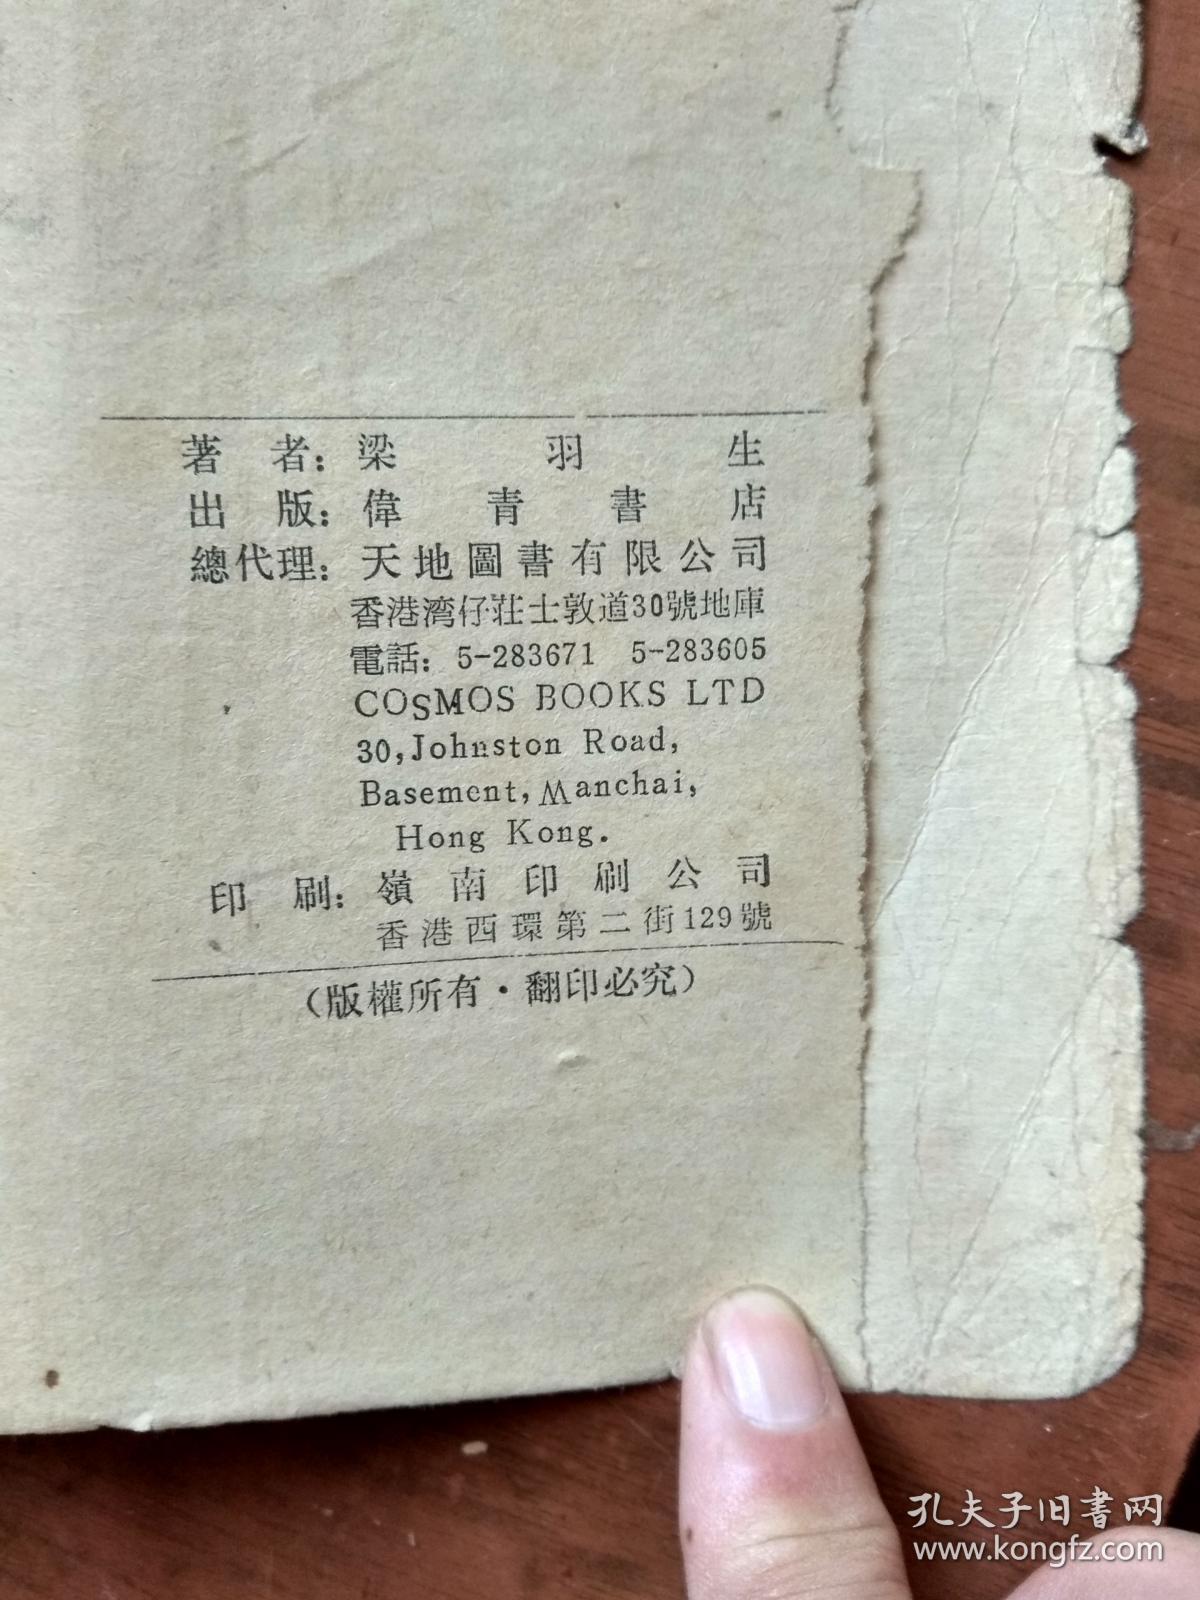 著 者：梁 羽 生
出 版：偉 青 書 店
總代理：天地圖書有限公司
香港湾仔莊士敦道30號地庫
電話：5-283671 5-283605
COSMOS BOOKS LTD
30,Johnston Road,
Basement, Wanchai,
Hong Kong.
印 刷：嶺南印刷公司
香港西環第二街129號
（版權所有·翻印必究）
孔夫子旧书网
www.kongfz.com